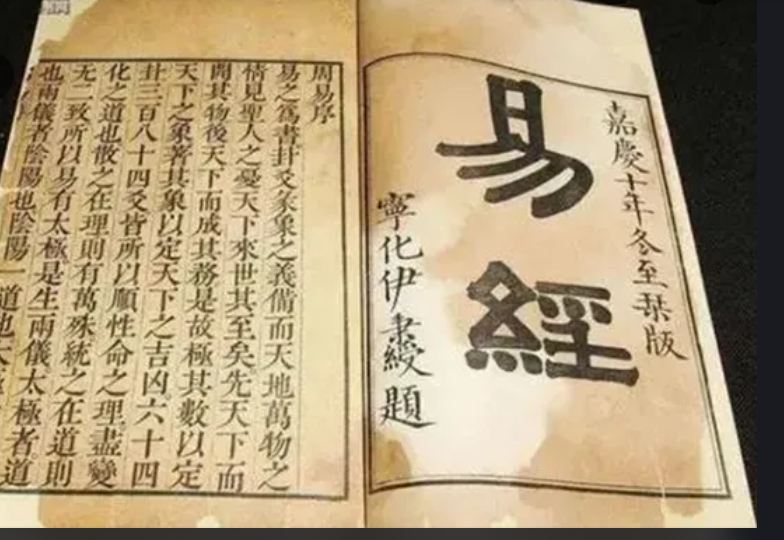 嘉慶十年冬至栞版
易經
寧化伊秉綬題
周易序
易之爲書卦爻彖象之義備而天地萬物之
情見聖人之憂天下來世其至矣先天下而
開其物後天下而成其務是故極其數以定
天下之象著其象以定天下之吉凶六十四
卦三百八十四爻皆所以順性命之理盡變
化之道也散之在理則有萬殊統之在道則
无二致所以易有太極是生兩儀太極者道
也兩儀者陰陽也陰陽一道也太